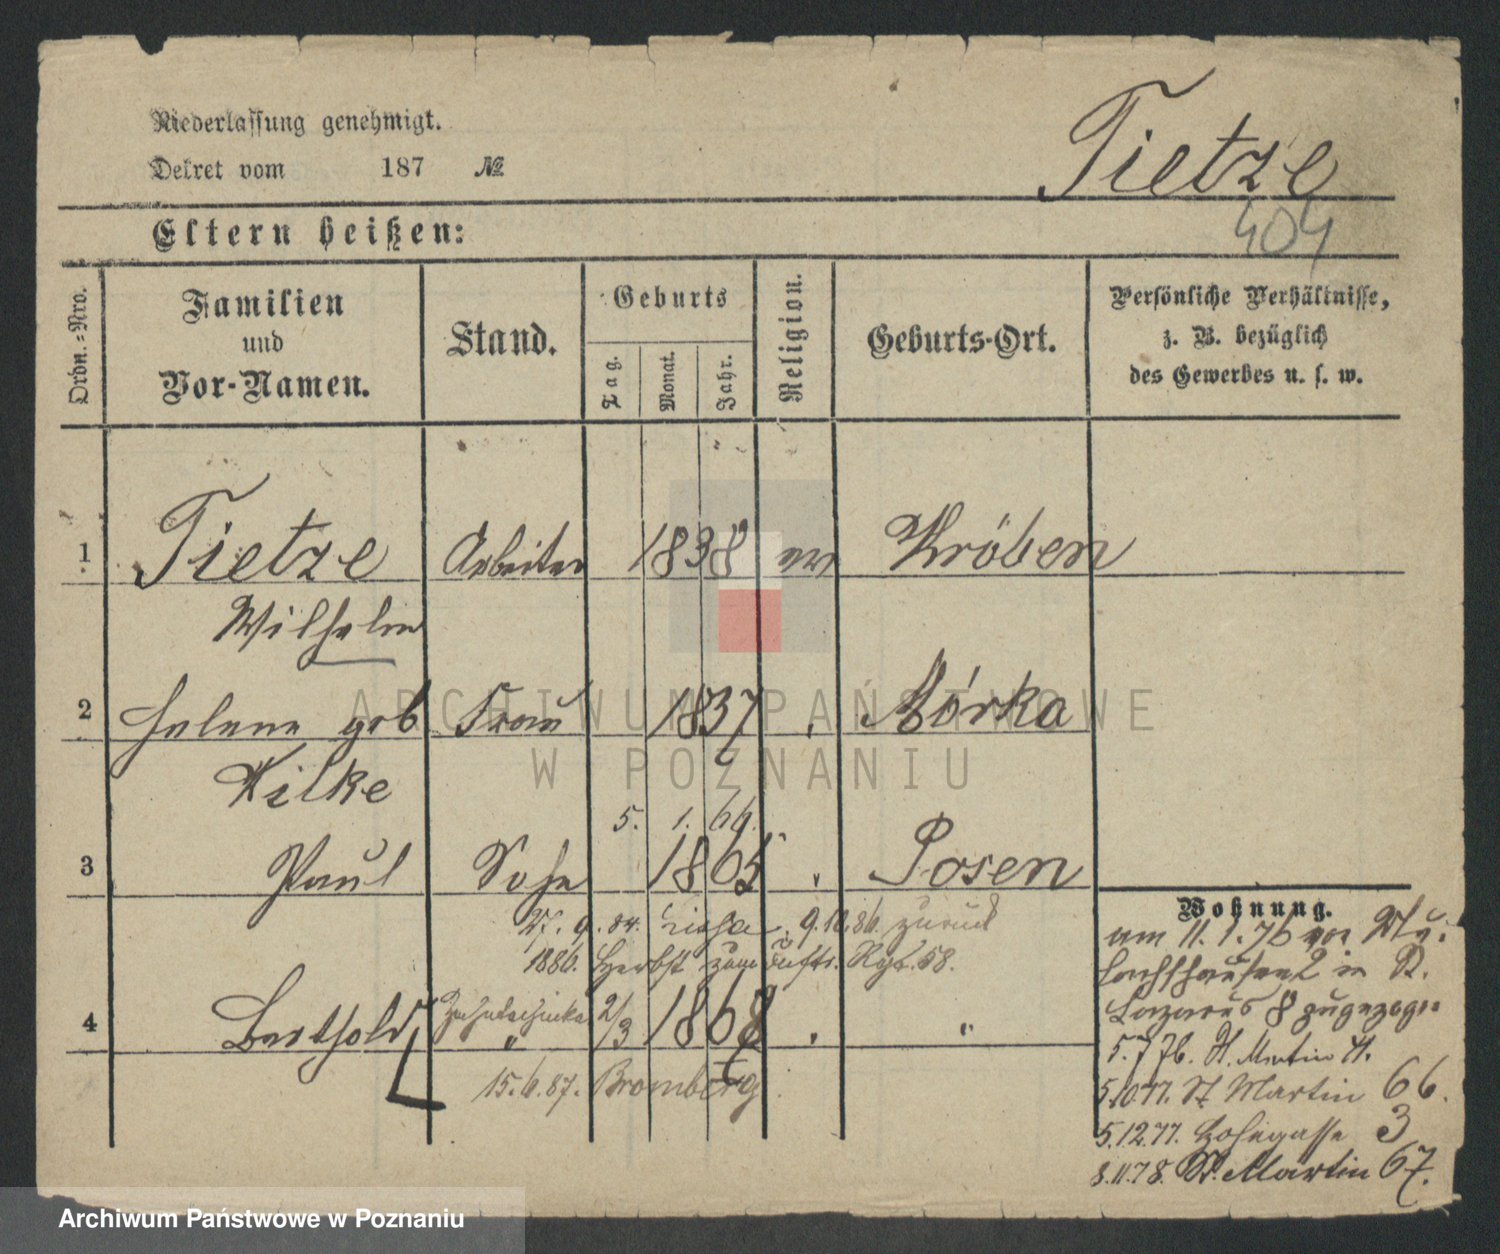 Niederlassung genehmigt.
Dekret vom 187 №
Tietze
404
Eltern heißen:
Ordn.=Nro.
Familien
und
Vor-Namen.
Stand.
Geburts
Tag.
Monat.
Jahr.
Religion.
Geburts-Ort.
Persönliche Verhältnisse,
z. B. bezüglich
des Gewerbes u. s. w.
1 Tietze Arbeiter 1838 ev Kröben
Wilhelm
2 Helene geb Frau 1837 " Mórka
Wilke
5. 1. 64.
3 Paul Sohn 1865 " Posen
27. 9. 84. Lissa. 9.10.86. zurück
1886. Herbst zum Inftr. Rgt. 58.
4 Berthold Zahntechniker " 2/3 1868 " "
15.6.87. Bromberg
Wohnung.
am 11.1.76 von
in St.
Lazarus 8 zugezogen
5.7.76. St. Martin 41.
5.10.77. St Martin 66.
5.12.77. 3
8.11.78. St. Martin 67.
ARCHIWUM PAŃSTWOWE
W POZNANIU
Archiwum Państwowe w Poznaniu